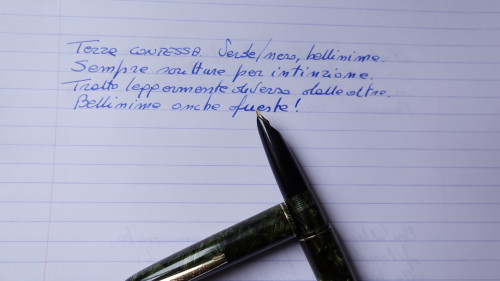 Terza CONTESSA. Verde/nero, bellissima.
Sempre scritture per intinzione.
Tratto leggermente diverso dalle altre.
Bellissima anche questa!